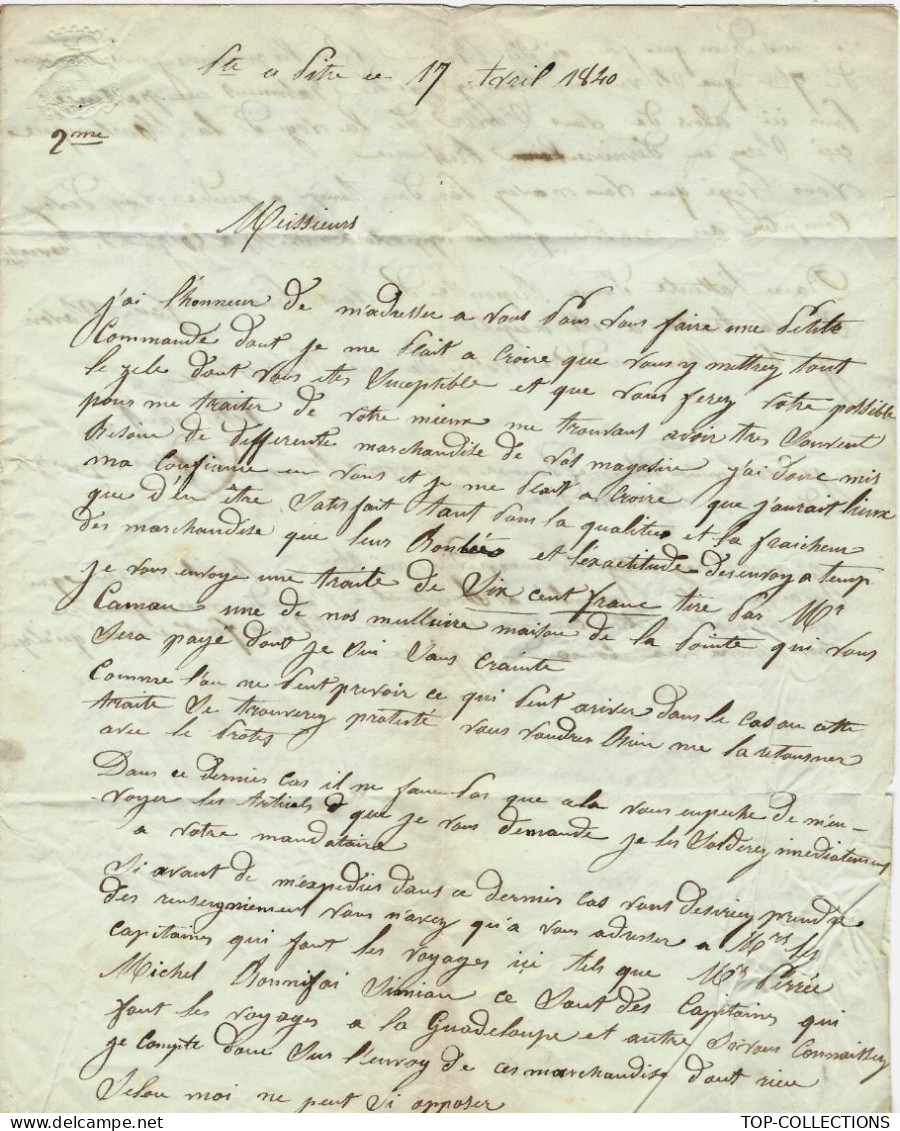 Pte a Pitre ce 17 Avril 1840
2me
Meissieurs
j'ai l'honneur de m'adresser a vous pour vous faire une petite
Commande dont je me plait a Croire que vous y mettrez tout
le zele dont vous êtes Suceptible et que vous ferez votre possible
pour me traiter de votre mieux me trouvant avoir tres Souvent
Besoin de differente marchandise de vos magasins j'ai donc mis
ma Confience en vous et je me plait a croire que j'aurait lieux
que d'en être Satisfait tant pour la qualitée et la fraicheur
des marchandise que leur Bontées et l'exactitude des envoy a temp
Je vous envoye une traite de Six cent franc tire par Mr
Camau une de nos mellieure maison de la Pointe qui vous
Sera payé dont je Sui Sans Crainte
Comme l'on ne peut prevoir ce qui peut ariver dans le cas ou cette
traite Se trouverez protesté vous voudrez Bien me la retourner
avec le protes
Dans ce dernier cas il ne faux pas que cela vous empeche de m'en-
voyer les Articles que je vous demande je les Solderez imediatement
a votre mandataire
Si avant de m'expedier dans ce dernier cas vous desiriez prendre
des renseigniement vous n'avez qu'a vous adresser a Mrs les
Capitaines qui font les voyages ici tels que Mrs Perrée
Michel Bonnifai Simian ce Sont des Capitaines qui
font les voyages a la Guadeloupe et autre Si vous Connaissez
je Compte donc Sur l'envoy de ces marchandise dont rien
Selon moi ne peut Si opposer
TOP-COLLECTIONS